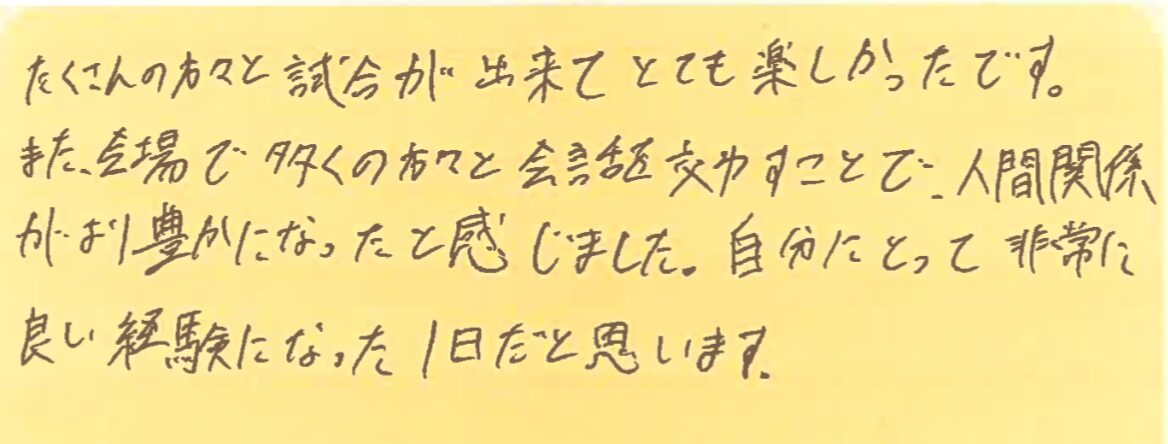 たくさんの方々と試合が出来てとても楽しかったです。
また、会場で多くの方々と会話を交わすことで、人間関係
がより豊かになったと感じました。自分にとって非常に
良い経験になった1日だと思います。